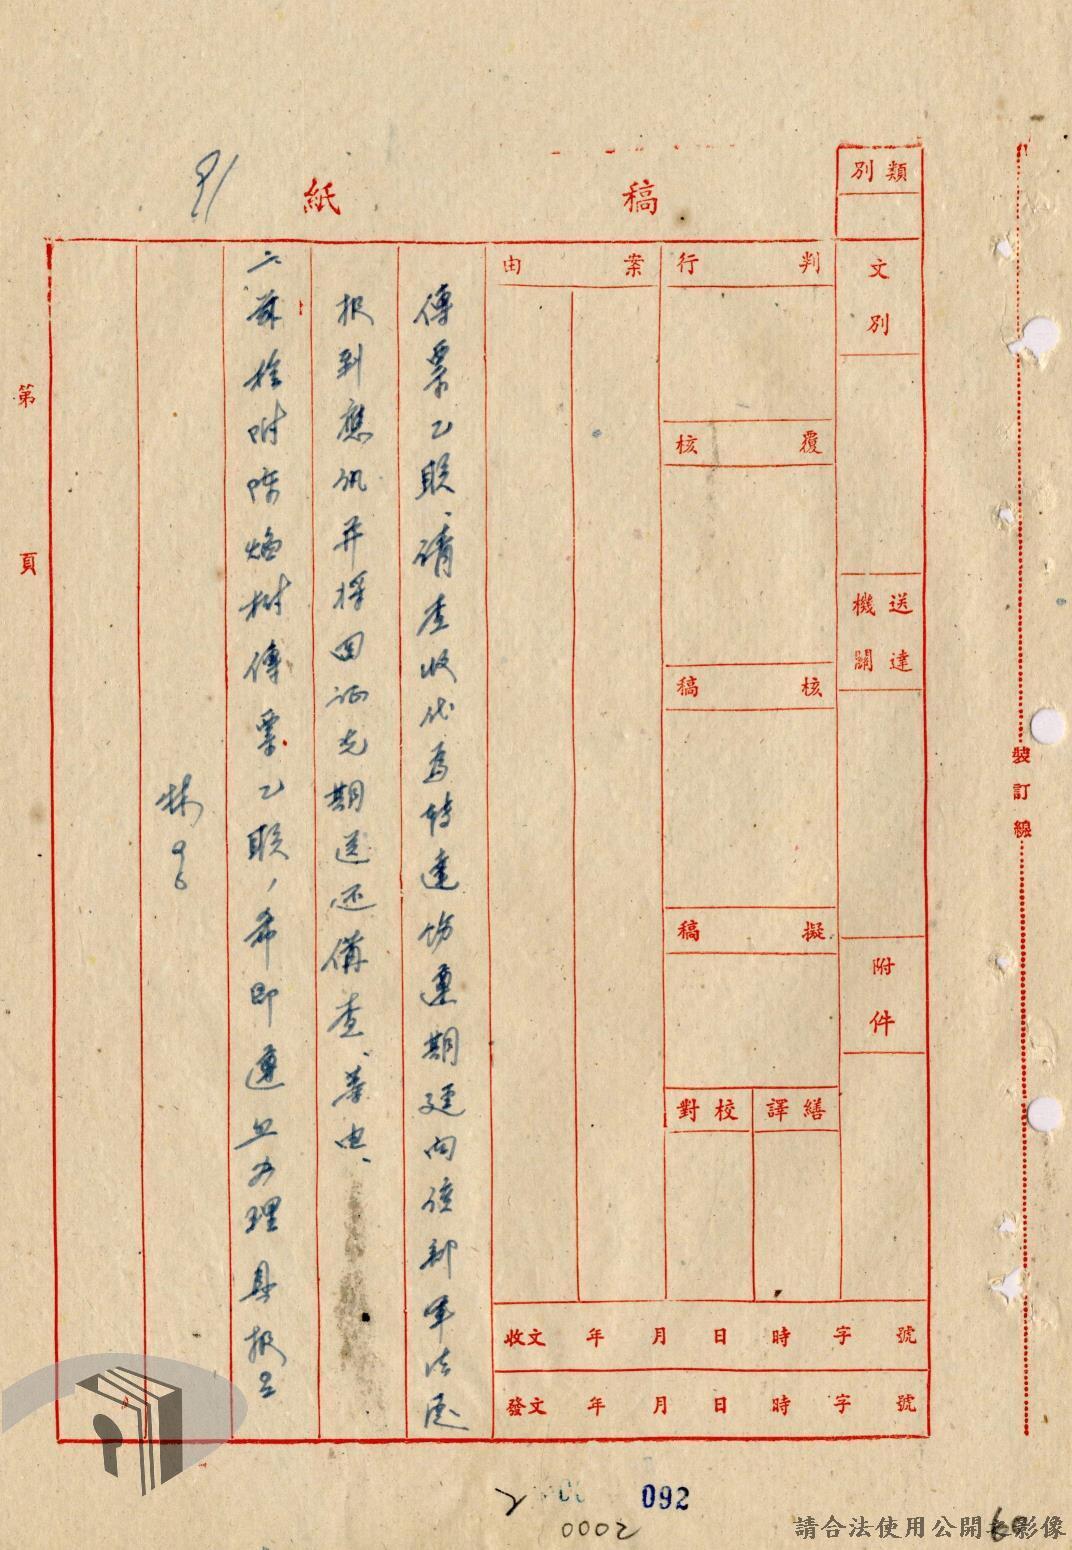 稿紙
類別
文別
送達機關
附件
判行
覆核
核稿
擬稿
繕譯
校對
案由
收文 年 月 日 時 字 號
發文 年 月 日 時 字 號
傳票乙聯、請查收代為轉達飭遵期逕向該部軍法處
報到應訊并将回证先期送还備查、
二、茲檢附陳焕樹傳票乙聯，希即遵照办理具报
林
第 頁
裝訂線
092
0002
請合法使用公開之影像